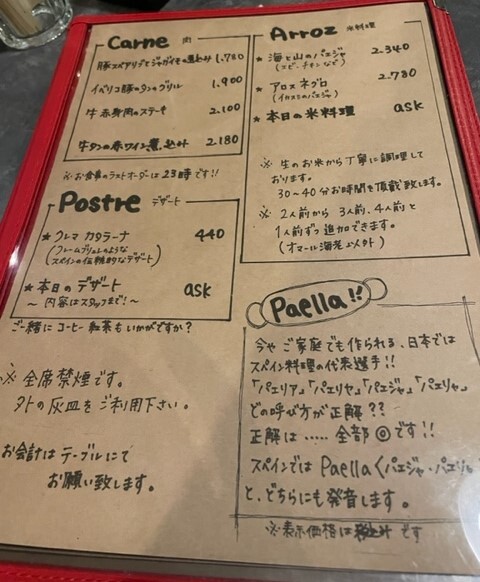 Carne 肉
豚スペアリブとジャガイモの煮込み 1.780
イベリコ豚のタングリル 1.900
牛赤身肉のステーキ 2.100
牛タンの赤ワイン煮込み 2.180
※お食事のラストオーダーは23時です!!
Postre デザート
★ クレマ カタラーナ 440
(クレームブリュレのような
スペインの伝統的なデザート)
★ 本日のデザート ask
〜内容はスタッフまで!〜
ご一緒に コーヒー 紅茶も いかがですか?
※ 全席禁煙です。
外の灰皿をご利用下さい。
お会計はテーブルにて
お願い致します。
Arroz 米料理
★ 海と山のパエジャ 2.340
(エビ、チキンなど)
★ アロス ネグロ 2.780
(イカスミのパエジャ)
★ 本日の米料理 ask
※ 生のお米から丁寧に調理して
おります。
30〜40分お時間を頂戴致します。
※ 2人前から 3人前、4人前と
1人前ずつ追加できます。
(オマール海老以外)
Paella!!
今やご家庭でも作られる、日本では
スペイン料理の代表選手!!
「パエリア」「パエリヤ」「パエジャ」「パエリャ」
どの呼び方が正解??
正解は ..... 全部◎です!!
スペインでは Paella〈パエジャ・パエリャ
と、どちらにも発音します。
※表示価格は税込みです